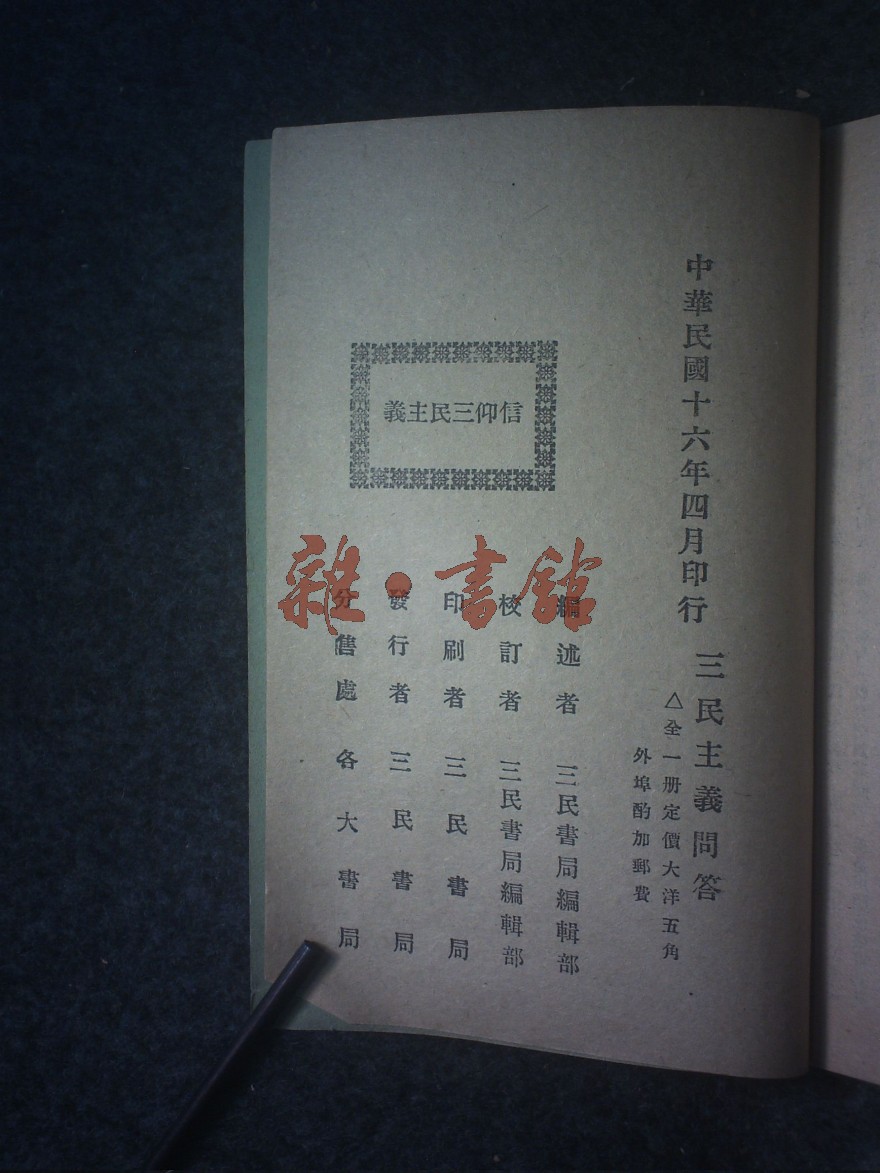 中華民國十六年四月印行
三民主義問答
△全一册定價大洋五角
外埠酌加郵費
編述者 三民書局編輯部
校訂者 三民書局編輯部
印刷者 三民書局
發行者 三民書局
分售處 各大書局
信仰三民主義
雜·書館